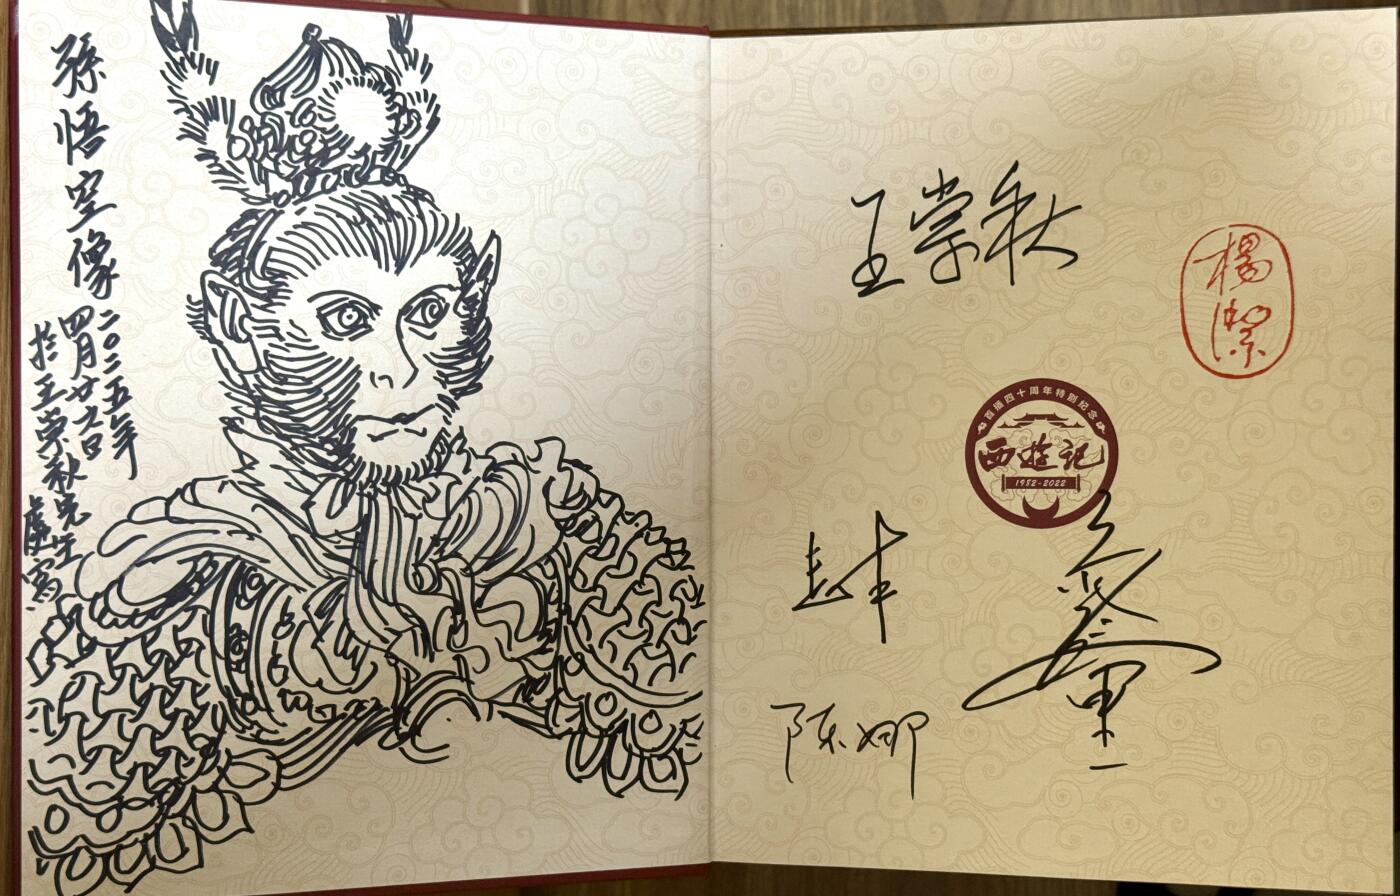 孫悟空像
二〇二五年
四月廿六日
於王崇秋先生
處寫
王崇秋
楊潔
首播四十周年特别纪念
西遊记
1982-2022
陈娜